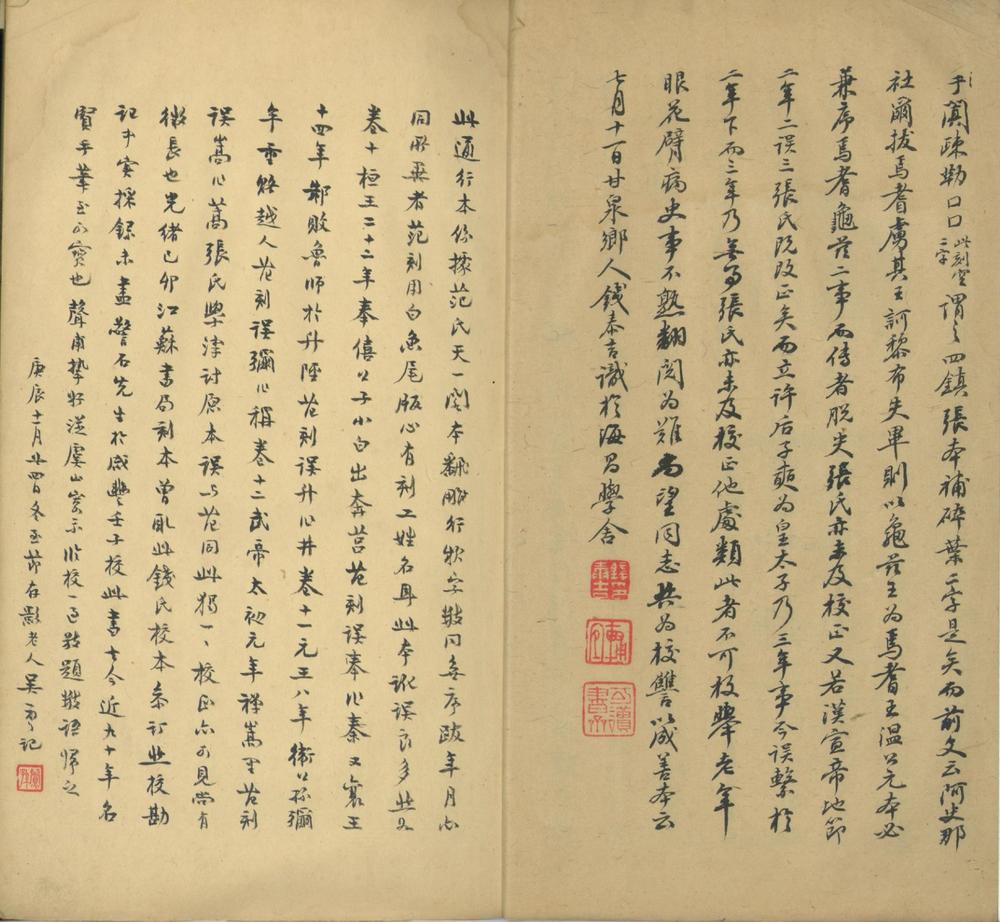 于闐疎勒口口此刻空二字謂之四鎮張本補碎葉二字是矣而前文云阿史那
社爾拔焉耆虜其王訶黎布失畢則以龜茲王為焉耆王溫公元本必
兼序焉耆龜茲二事而傳者脫失張氏亦未及校正又若漢宣帝地節
二年二誤三張氏既改正矣而立許后子奭為皇太子乃三年事今誤繫於
二年下而三年乃無事張氏亦未及校正他處類此者不可枚舉老年
眼花臂病史事不熟翻閱為難尚望同志共為校讐以成善本云
七月十一日甘泉鄉人錢泰吉識於海昌學舍
此通行本係據范氏天一閣本翻雕行款字數同無序跋年月
同所異者范刻用白魚尾版心有刻工姓名耳此本訛誤良多如
卷十桓王二十二年奉僖公子小白出奔莒范刻誤奉作秦又襄王
十四年邾敗魯師於升陘范刻誤升作井卷十一元王八年衞公孫彌
年重賂越人范刻誤彌作稱卷十二武帝太初元年禪嵩里范刻
誤嵩作蒿張氏學津討原本誤與范同此獨一一校正亦可見尚有
微長也光緒己卯江蘇書局刻本曾取此錢氏校本參訂此校勘
記中實採錄未盡警石先生於咸豐壬子校此書七今近九十年名
賢手筆至可寶也聲甫摯好從虞山寄示作校一過敬題數語歸之
庚辰十一月廿四日冬至節存影老人吳記